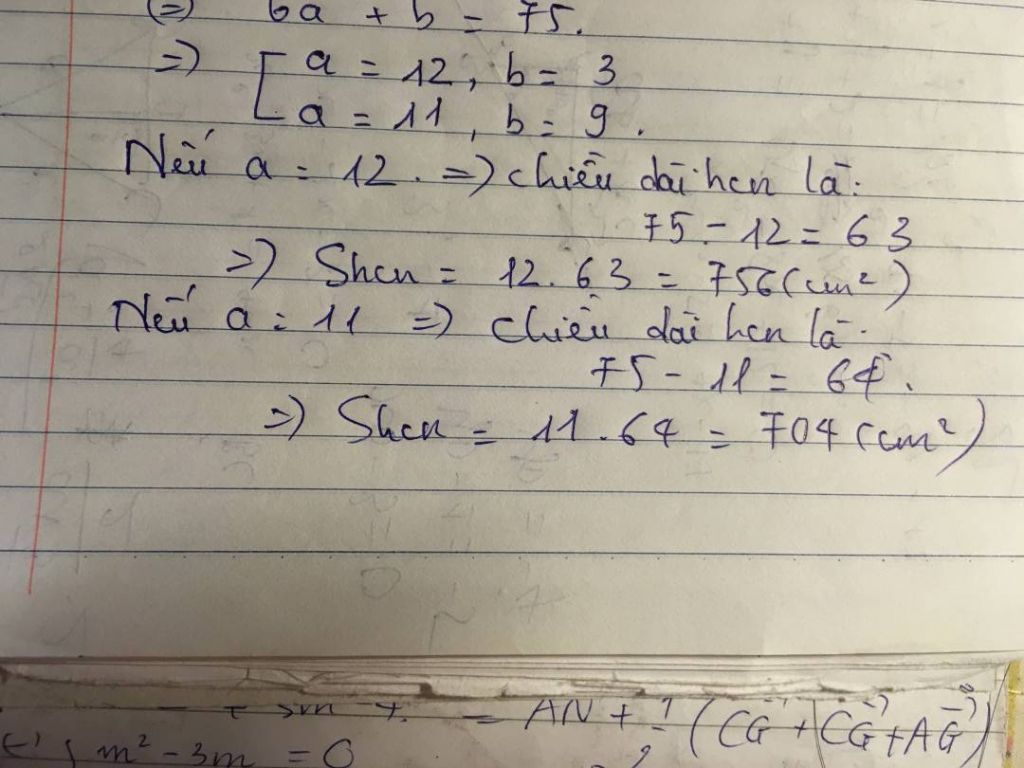 (=) 6a + b = 75.
=) [ a = 12, b = 3
a = 11, b = 9.
Nếu a = 12. =) chiều dài hcn là:
75 - 12 = 63
=) Shcn = 12.63 = 756 (cm²)
Nếu a = 11 =) chiều dài hcn là:
75 - 11 = 64.
=) Shcn = 11.64 = 704 (cm²)
= AN + (CG + CG + AG)
m² - 3m = 0